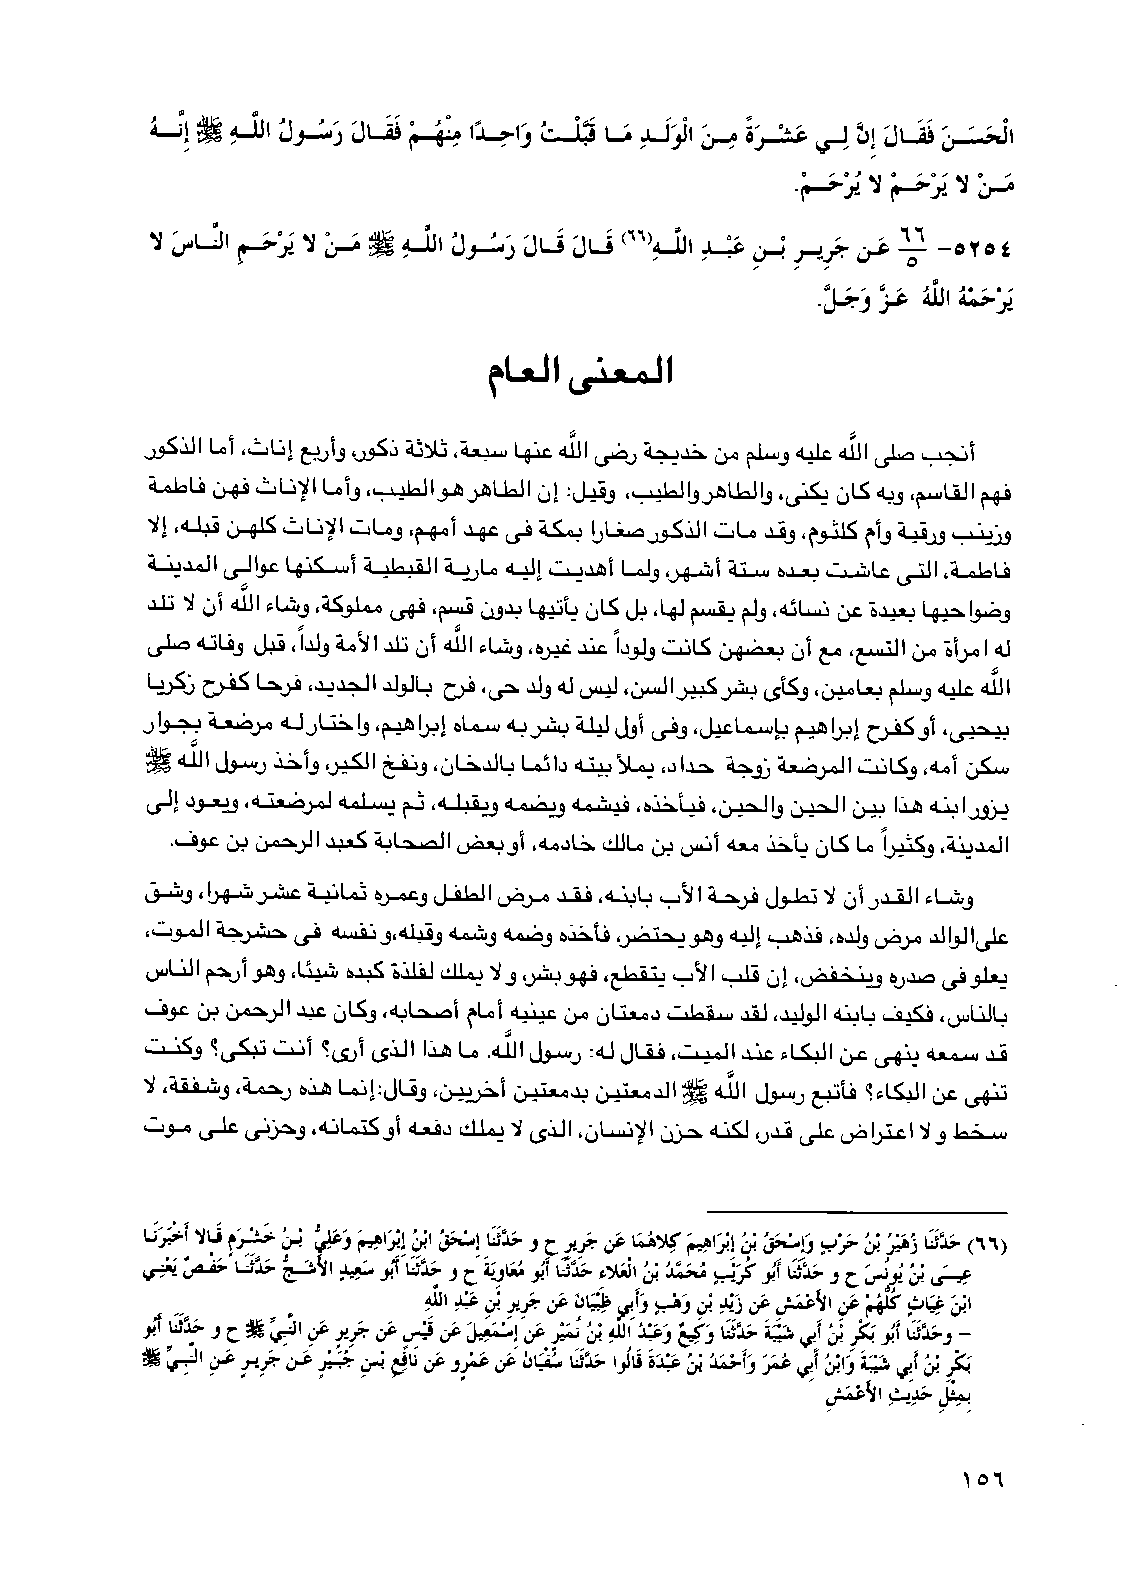 الْحَسَنَ فَقَالَ إِنَّ لِي عَشَرَةً مِنَ الْوَلَدِ مَا قَبَّلْتُ وَاحِدًا مِنْهُمْ فَقَالَ رَسُولُ اللَّهِ ﷺ إِنَّهُ
مَنْ لا يَرْحَمْ لا يُرْحَمْ.
٥٢٥٤- ٦٦/٥ عَن جَرِيرِ بْنِ عَبْدِ اللَّهِ(٦٦) قَالَ قَالَ رَسُولُ اللَّهِ ﷺ مَنْ لا يَرْحَمِ النَّاسَ لا
يَرْحَمْهُ اللَّهُ عَزَّ وَجَلَّ.
المعنى العام
أنجب صلى اللَّه عليه وسلم من خديجة رضى اللَّه عنها سبعة، ثلاثة ذكور، وأربع إناث، أما الذكور
فهم القاسم، وبه كان يكنى، والطاهر والطيب، وقيل: إن الطاهر هو الطيب، وأما الإناث فهن فاطمة
وزينب ورقية وأم كلثوم، وقد مات الذكور صغارا بمكة فى عهد أمهم، ومات الإناث كلهن قبله، إلا
فاطمة، التى عاشت بعده ستة أشهر، ولما أهديت إليه مارية القبطية أسكنها عوالى المدينة
وضواحيها بعيدة عن نسائه، ولم يقسم لها، بل كان يأتيها بدون قسم، فهى مملوكة، وشاء اللَّه أن لا تلد
له امرأة من التسع، مع أن بعضهن كانت ولوداً عند غيره، وشاء اللَّه أن تلد الأمة ولداً، قبل وفاته صلى
اللَّه عليه وسلم بعامين، وكأى بشر كبير السن، ليس له ولد حى، فرح بالولد الجديد، فرحا كفرح زكريا
بيحيى، أو كفرح إبراهيم بإسماعيل، وفى أول ليلة بشر به سماه إبراهيم، واختار له مرضعة بجوار
سكن أمه، وكانت المرضعة زوجة حداد، يملأ بيته دائما بالدخان، ونفخ الكير، وأخذ رسول اللَّه ﷺ
يزور ابنه هذا بين الحين والحين، فيأخذه، فيشمه ويضمه ويقبله، ثم يسلمه لمرضعته، ويعود إلى
المدينة، وكثيراً ما كان يأخذ معه أنس بن مالك خادمه، أو بعض الصحابة كعبد الرحمن بن عوف.
وشاء القدر أن لا تطول فرحة الأب بابنه، فقد مرض الطفل وعمره ثمانية عشر شهرا، وشق
على الوالد مرض ولده، فذهب إليه وهو يحتضر، فأخذه وضمه وشمه وقبله، ونفسه فى حشرجة الموت،
يعلو فى صدره وينخفض، إن قلب الأب يتقطع، فهو بشر، ولا يملك لفلذة كبده شيئا، وهو أرحم الناس
بالناس، فكيف بابنه الوليد، لقد سقطت دمعتان من عينيه أمام أصحابه، وكان عبد الرحمن بن عوف
قد سمعه ينهى عن البكاء عند الميت، فقال له: رسول اللَّه. ما هذا الذى أرى؟ أنت تبكى؟ وكنت
تنهى عن البكاء؟ فأتبع رسول اللَّه ﷺ الدمعتين بدمعتين أخريين، وقال: إنما هذه رحمة، وشفقة، لا
سخط ولا اعتراض على قدر، لكنه حزن الإنسان، الذى لا يملك دفعه أو كتمانه، وحزنى على موت
(٦٦) حَدَّثَنَا زُهَيْرُ بْنُ حَرْبٍ وَإِسْحَقُ بْنُ إِبْرَاهِيمَ كِلاهُمَا عَن جَرِيرٍ ح و حَدَّثَنَا إِسْحَقُ ابْنُ إِبْرَاهِيمَ وَعَلِيُّ بْنُ خَشْرَمٍ قَالا أَخْبَرَنَا
عِيسَى بْنُ يُونُسَ ح و حَدَّثَنَا أَبُو كُرَيْبٍ مُحَمَّدُ بْنُ الْعَلاءِ حَدَّثَنَا أَبُو مُعَاوِيَةَ ح و حَدَّثَنَا أَبُو سَعِيدٍ الأَشَجُّ حَدَّثَنَا حَفْصٌ يَعْنِي
ابْنَ غِيَاثٍ كُلُّهُمْ عَنِ الأَعْمَشِ عَن زَيْدِ بْنِ وَهْبٍ وَأَبِي ظِبْيَانَ عَن جَرِيرِ بْنِ عَبْدِ اللَّهِ
- وحَدَّثَنَا أَبُو بَكْرِ بْنُ أَبِي شَيْبَةَ حَدَّثَنَا وَكِيعٌ وَعَبْدُ اللَّهِ بْنُ نُمَيْرٍ عَن إِسْمَعِيلَ عَن قَيْسٍ عَن جَرِيرٍ عَنِ النَّبِيِّ ﷺ ح و حَدَّثَنَا أَبُو
بَكْرِ بْنُ أَبِي شَيْبَةَ وَابْنُ أَبِي عُمَرَ وَأَحْمَدُ بْنُ عَبْدَةَ قَالُوا حَدَّثَنَا سُفْيَانُ عَن عَمْرٍو عَن نَافِعِ بْنِ جُبَيْرٍ عَن جَرِيرٍ عَنِ النَّبِيِّ ﷺ
بِمِثْلِ حَدِيثِ الأَعْمَشِ
١٥٦